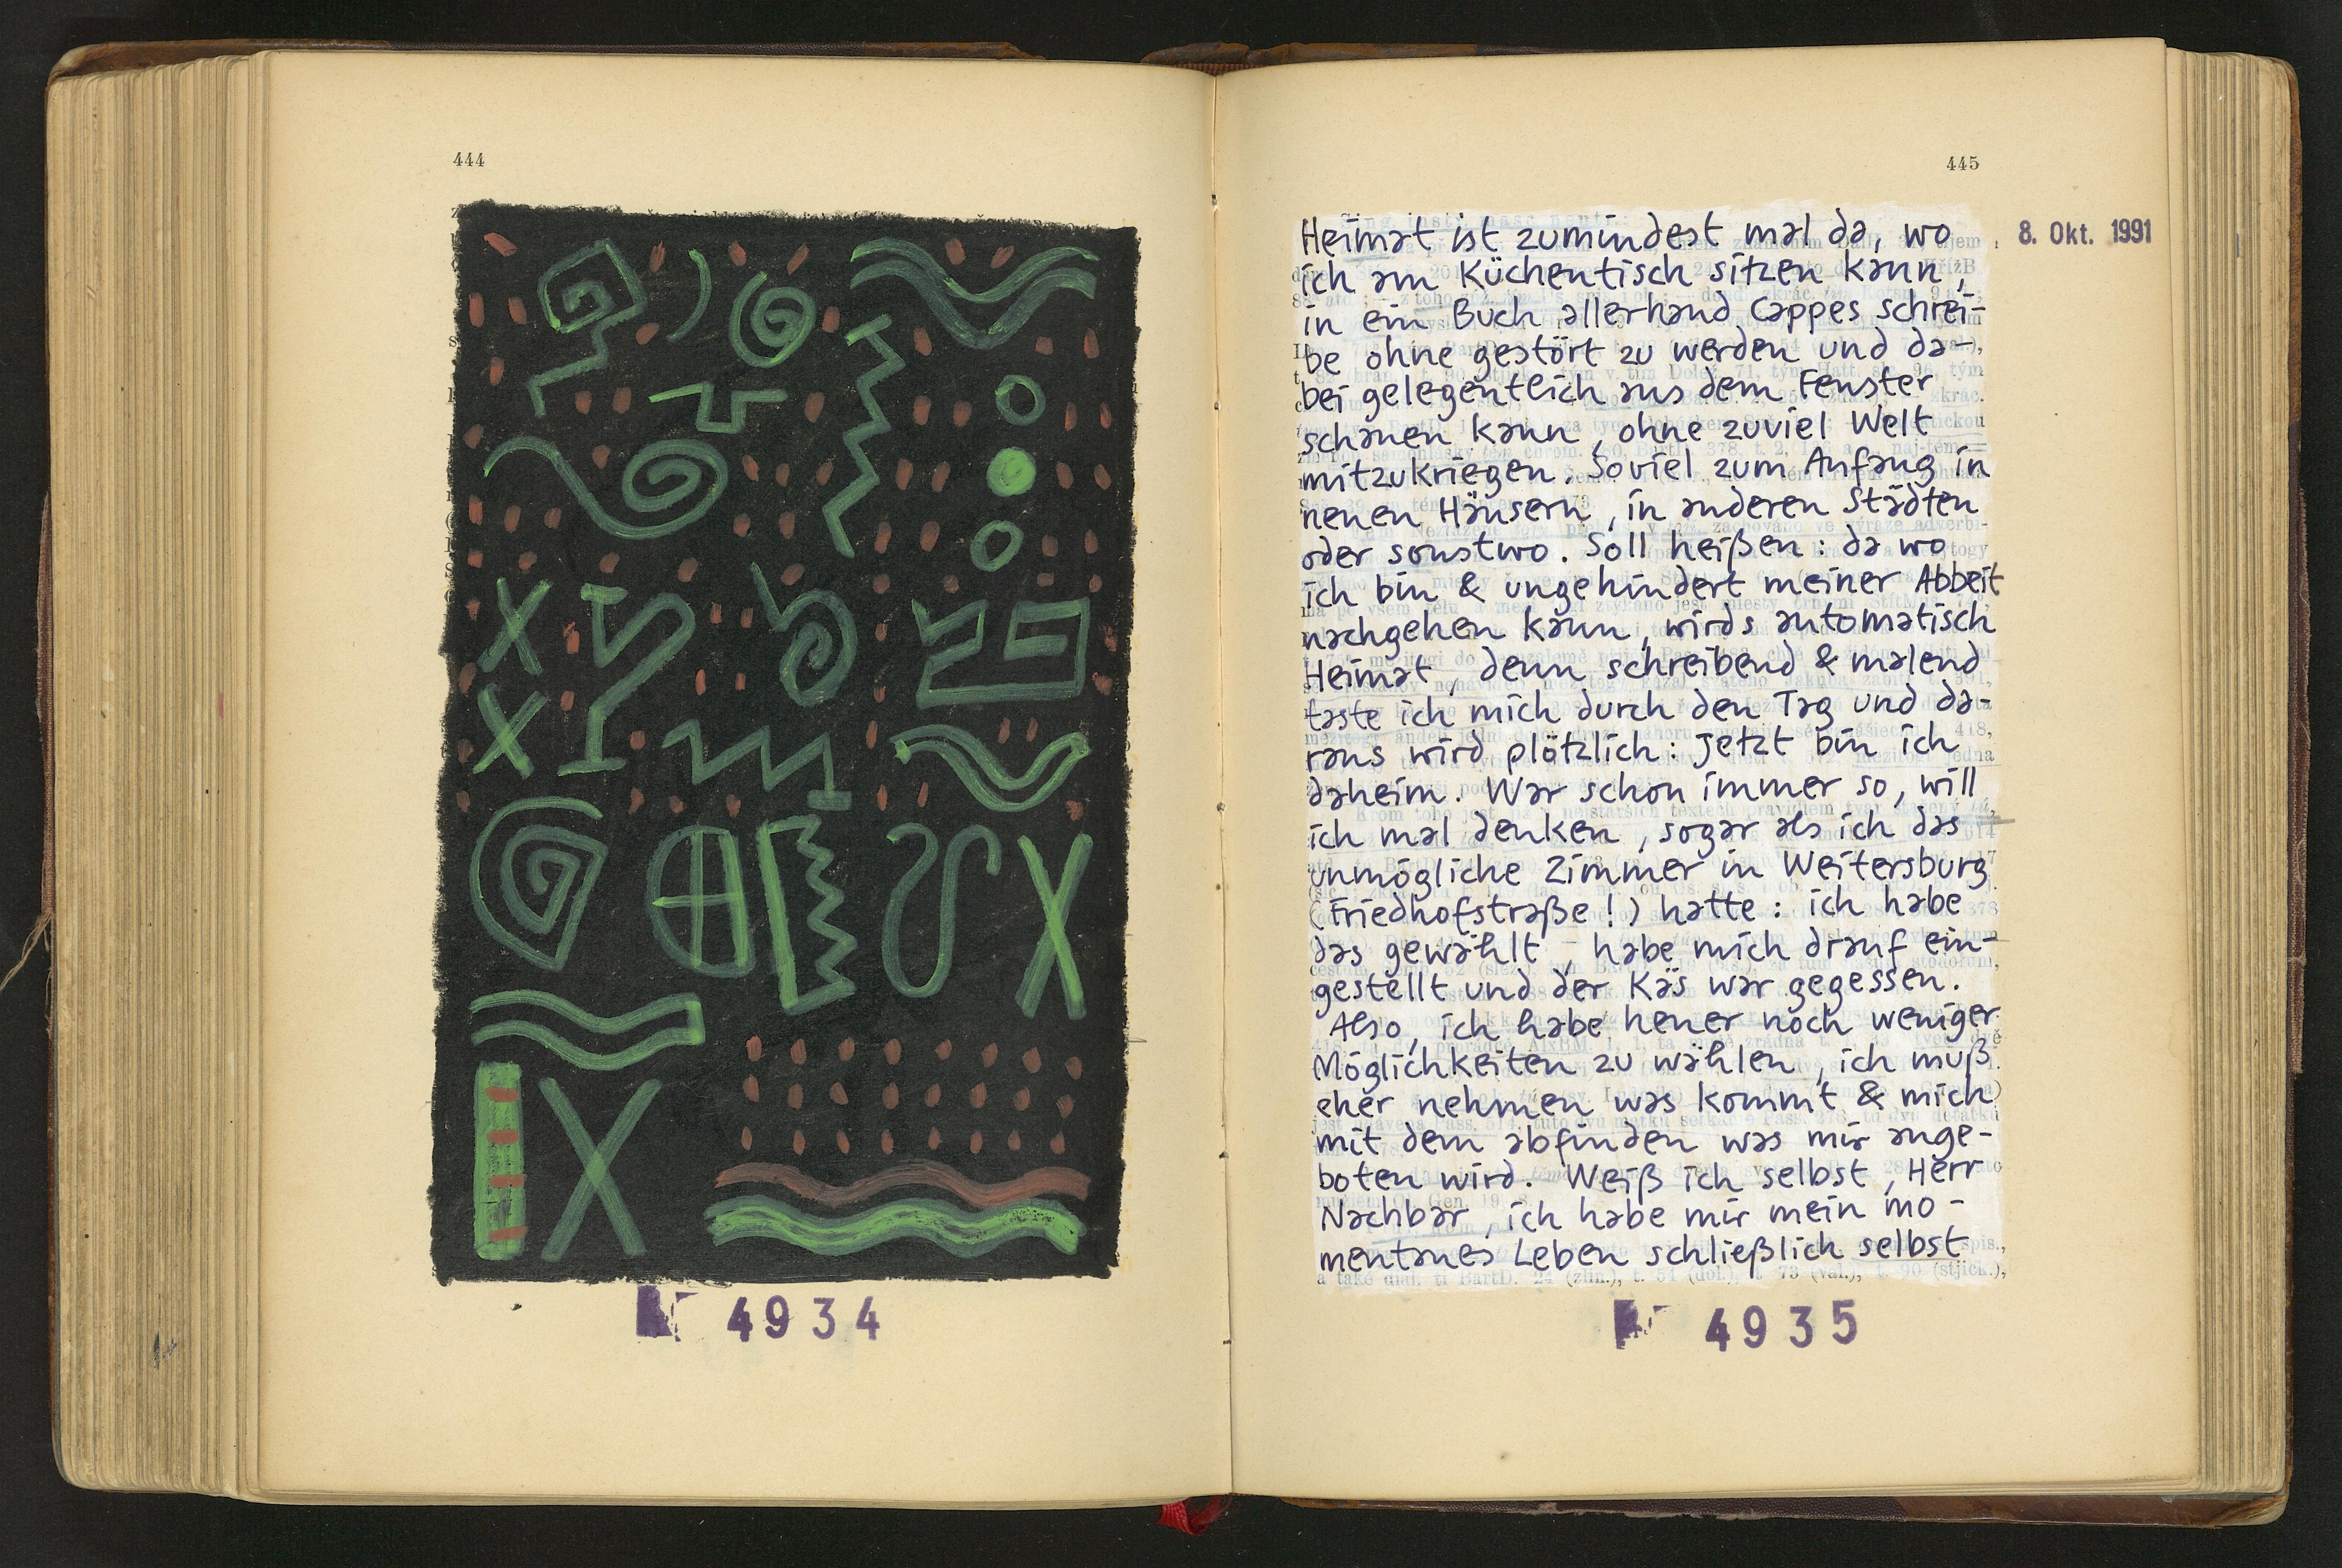 444
4934
445
8. Okt. 1991
Heimat ist zumindest mal da, wo
ich am Küchentisch sitzen kann,
in ein Buch allerhand Cappes schrei-
be ohne gestört zu werden und da-
bei gelegentlich aus dem Fenster
schauen kann, ohne zuviel Welt
mitzukriegen. Soviel zum Anfang in
neuen Häusern, in anderen Städten
oder sonstwo. Soll heißen: da wo
ich bin & ungehindert meiner Abbeit
nachgehen kann, wirds automatisch
Heimat, denn schreibend & malend
taste ich mich durch den Tag und da-
raus wird plötzlich: Jetzt bin ich
daheim. War schon immer so, will
ich mal denken, sogar als ich das
unmögliche Zimmer in Weitersburg
(Friedhofstraße!) hatte: ich habe
das gewählt, habe mich drauf ein-
gestellt und der Käs war gegessen.
Also, ich habe heuer noch weniger
Möglichkeiten zu wählen, ich muß
eher nehmen was kommt & mich
mit dem abfinden was mir ange-
boten wird. Weiß ich selbst, Herr
Nachbar, ich habe mir mein mo-
mentanes Leben schließlich selbst
4935